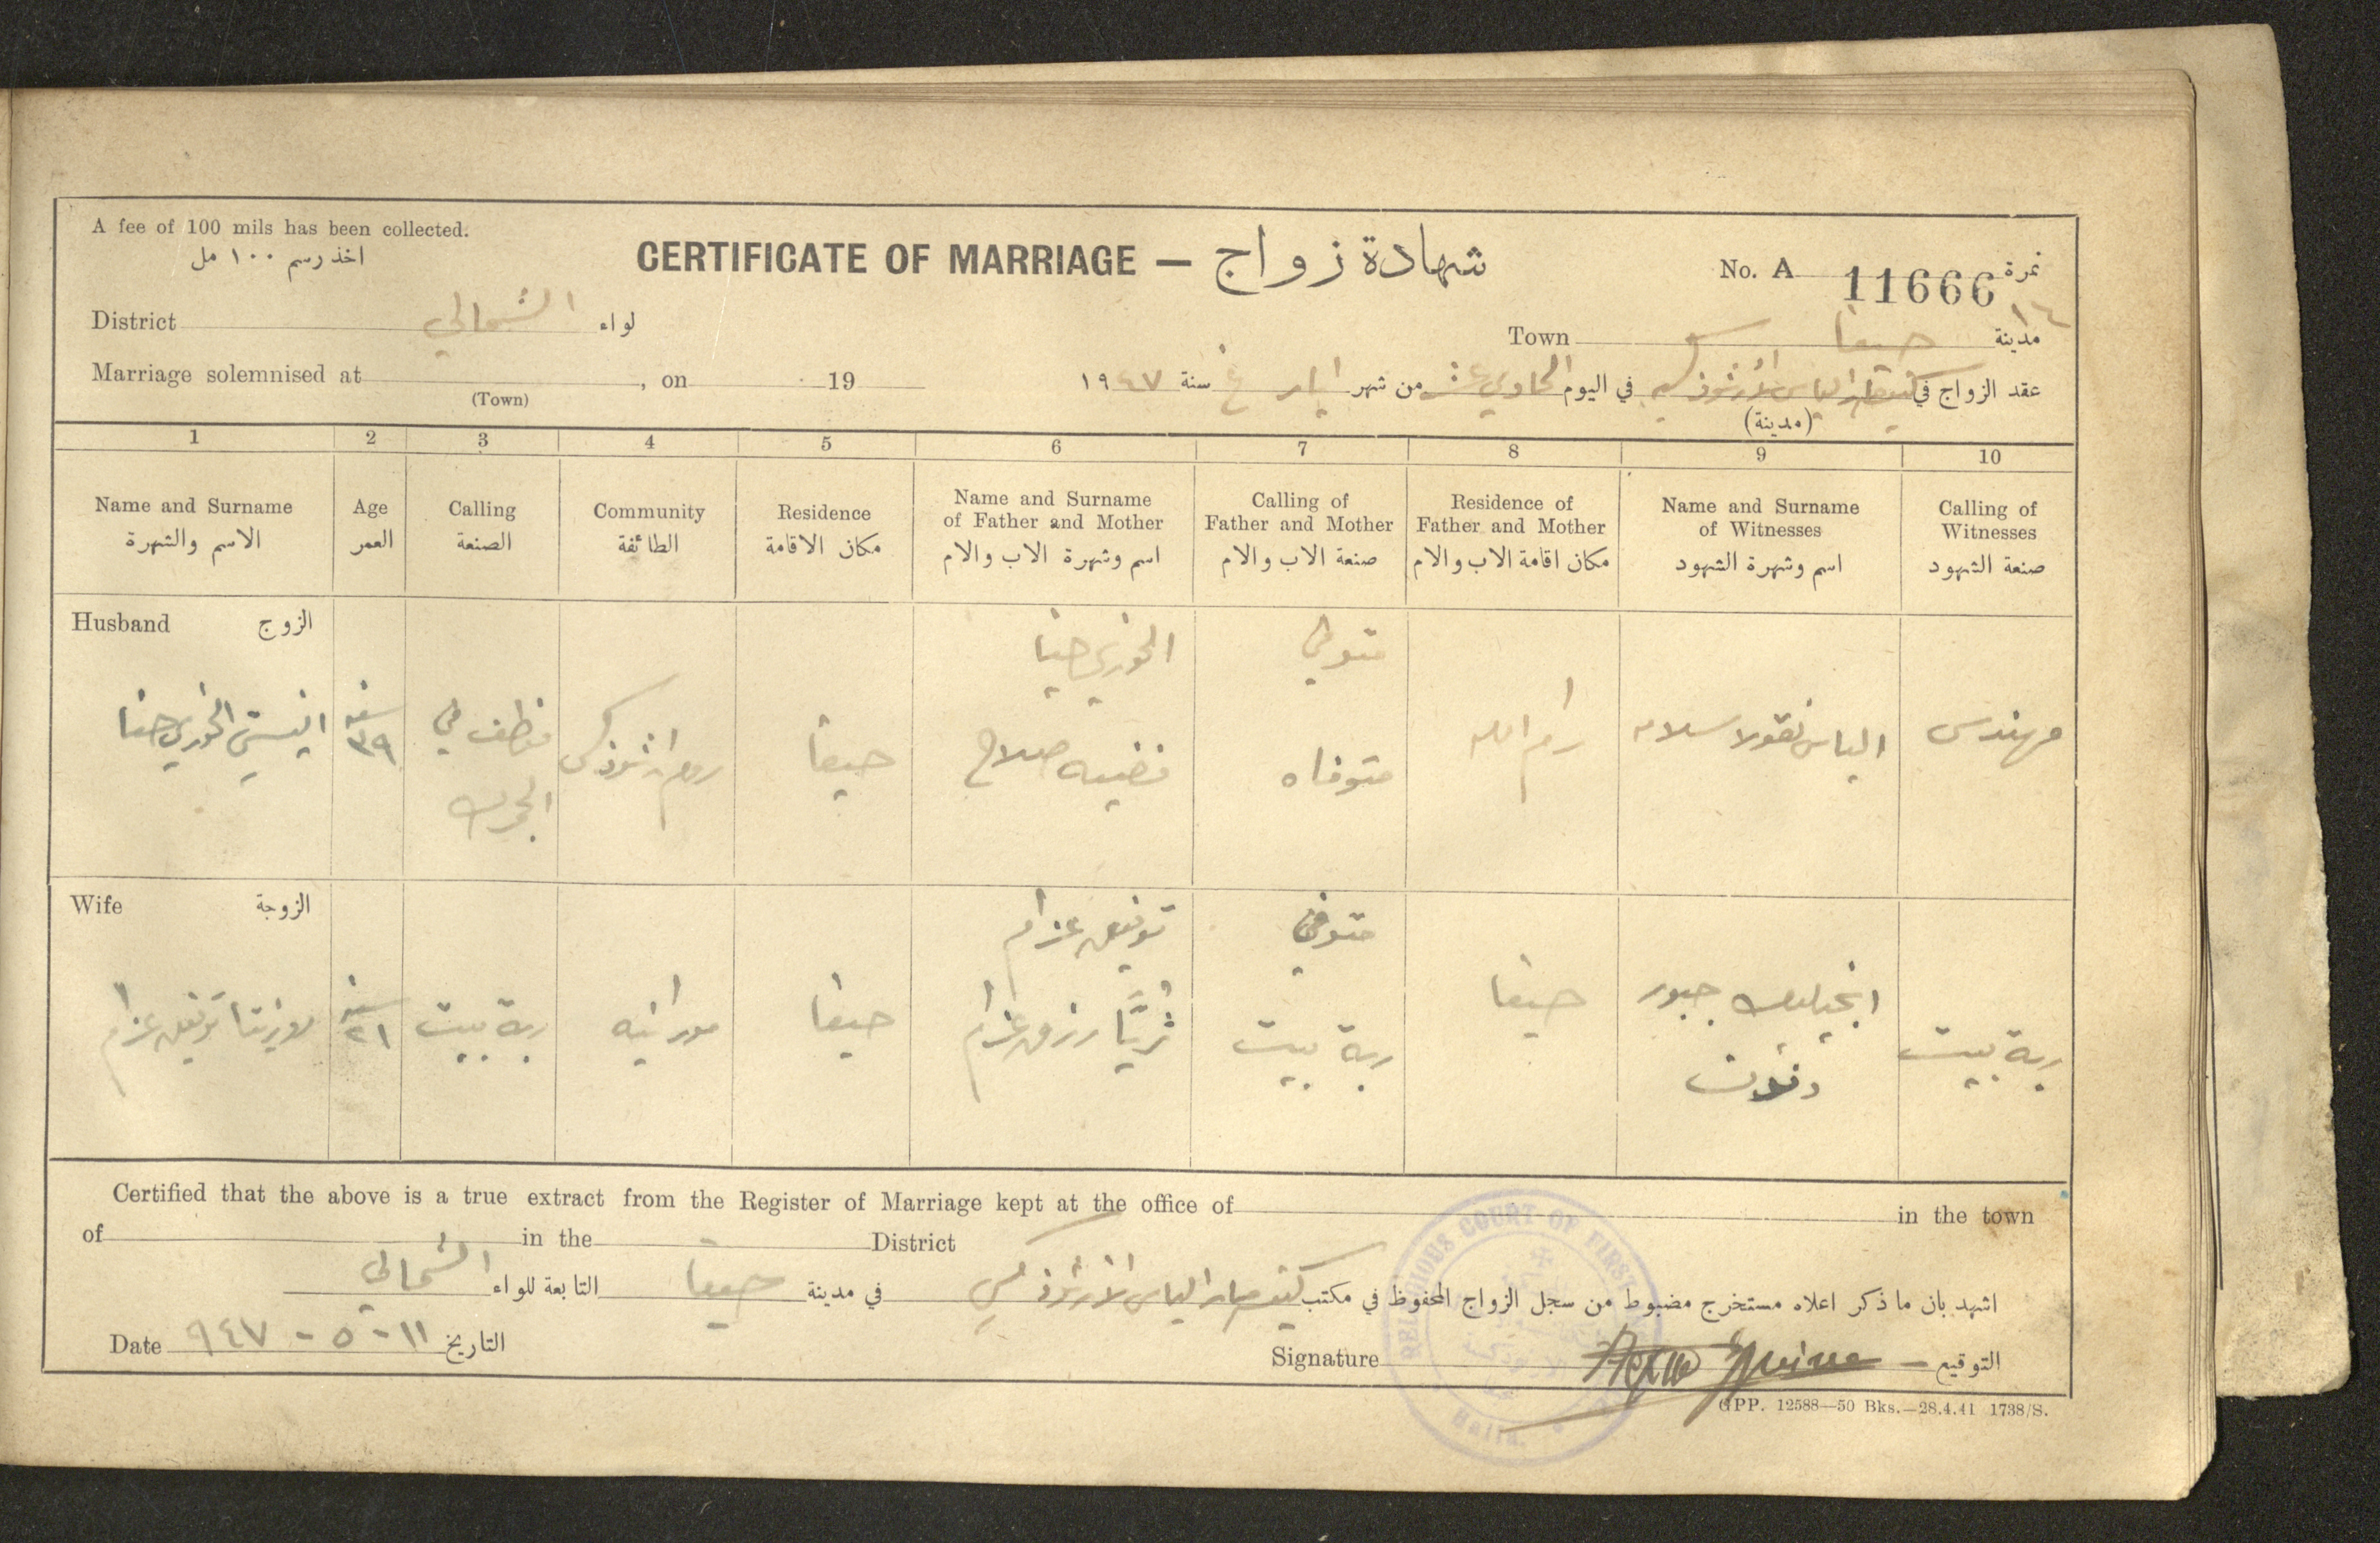 A fee of 100 mils has been collected.
اخذ رسم ١٠٠ مل
CERTIFICATE OF MARRIAGE — شهادة زواج
No. A 11666 نمرة
١٤
District الشمالي لواء
Town حيفا مدينة
Marriage solemnised at , on 19
(Town)
عقد الزواج في كنيسة مار الياس الارثوذكسية في اليوم الحادي عشر من شهر ايار سنة ١٩٤٧
(مدينة)
1 2 3 4 5 6 7 8 9 10
Name and Surname
الاسم والشهرة
Age
العمر
Calling
الصنعة
Community
الطائفة
Residence
مكان الاقامة
Name and Surname
of Father and Mother
اسم وشهرة الاب والام
Calling of
Father and Mother
صنعة الاب والام
Residence of
Father and Mother
مكان اقامة الاب والام
Name and Surname
of Witnesses
اسم وشهرة الشهود
Calling of
Witnesses
صنعة الشهود
Husband الزوج
الخوري حنا
سنة
٣٩
موظف في
الجمرك
روم ارثوذكس
حيفا
الخوري حنا
صلاح
متوفي
متوفاه
رام الله
الياس نقولا سلامه
مهندس
Wife الزوجة
توفيق عزام
سنة
٢١
ربة بيت
مورانيه
حيفا
توفيق عزام
ثريَّا رزق عزام
متوفي
ربة بيت
حيفا
انجيليك جبور
ربة بيت
Certified that the above is a true extract from the Register of Marriage kept at the office of in the town
of in the District
اشهد بان ما ذكر اعلاه مستخرج مضبوط من سجل الزواج المحفوظ في مكتب كنيسة مار الياس الارثوذكسي في مدينة حيفا التابعة للواء الشمالي
Date ١١ - ٥ - ٩٤٧ التاريخ
Signature التوقيع
RELIGIOUS COURT OF FIRST
Haifa.
GPP. 12588—50 Bks.—28.4.41 1738/S.